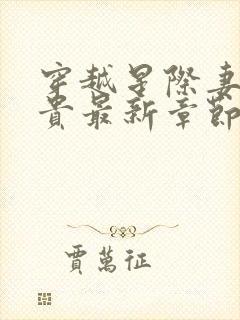 穿越星際妻
貴最新章節
賈萬征